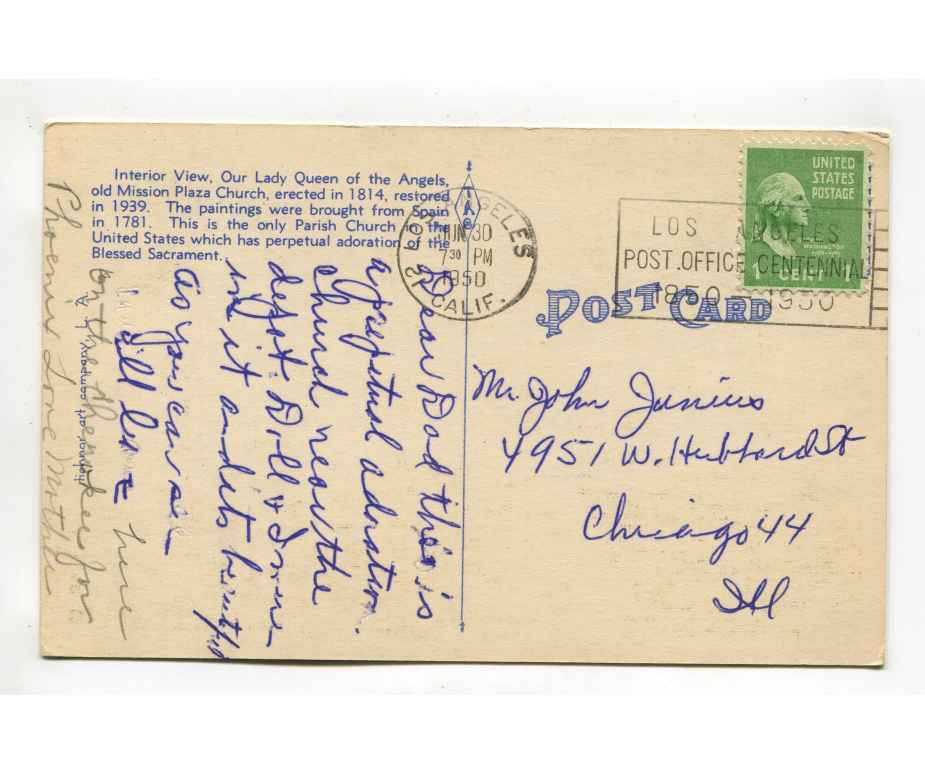 Interior View, Our Lady Queen of the Angels,
old Mission Plaza Church, erected in 1814, restored
in 1939. The paintings were brought from Spain
in 1781. This is the only Parish Church in the
United States which has perpetual adoration of the
Blessed Sacrament.
TAC
LOS ANGELES
JUN 30
730 PM
1950
CALIF.
LOS ANGELES
POST OFFICE CENTENNIAL
1850 - 1950
UNITED
STATES
POSTAGE
WASHINGTON
1 CENT 1
POST CARD
Mr. John Junius
4951 W. Hubbard St
Chicago 44
Ill
Dear Dad this is
a perpetual adoration
church near the
depot. Doll &
in it and its beautiful
as you can see
will leave here
on the
Phoenix Love Mother
tichnor art company